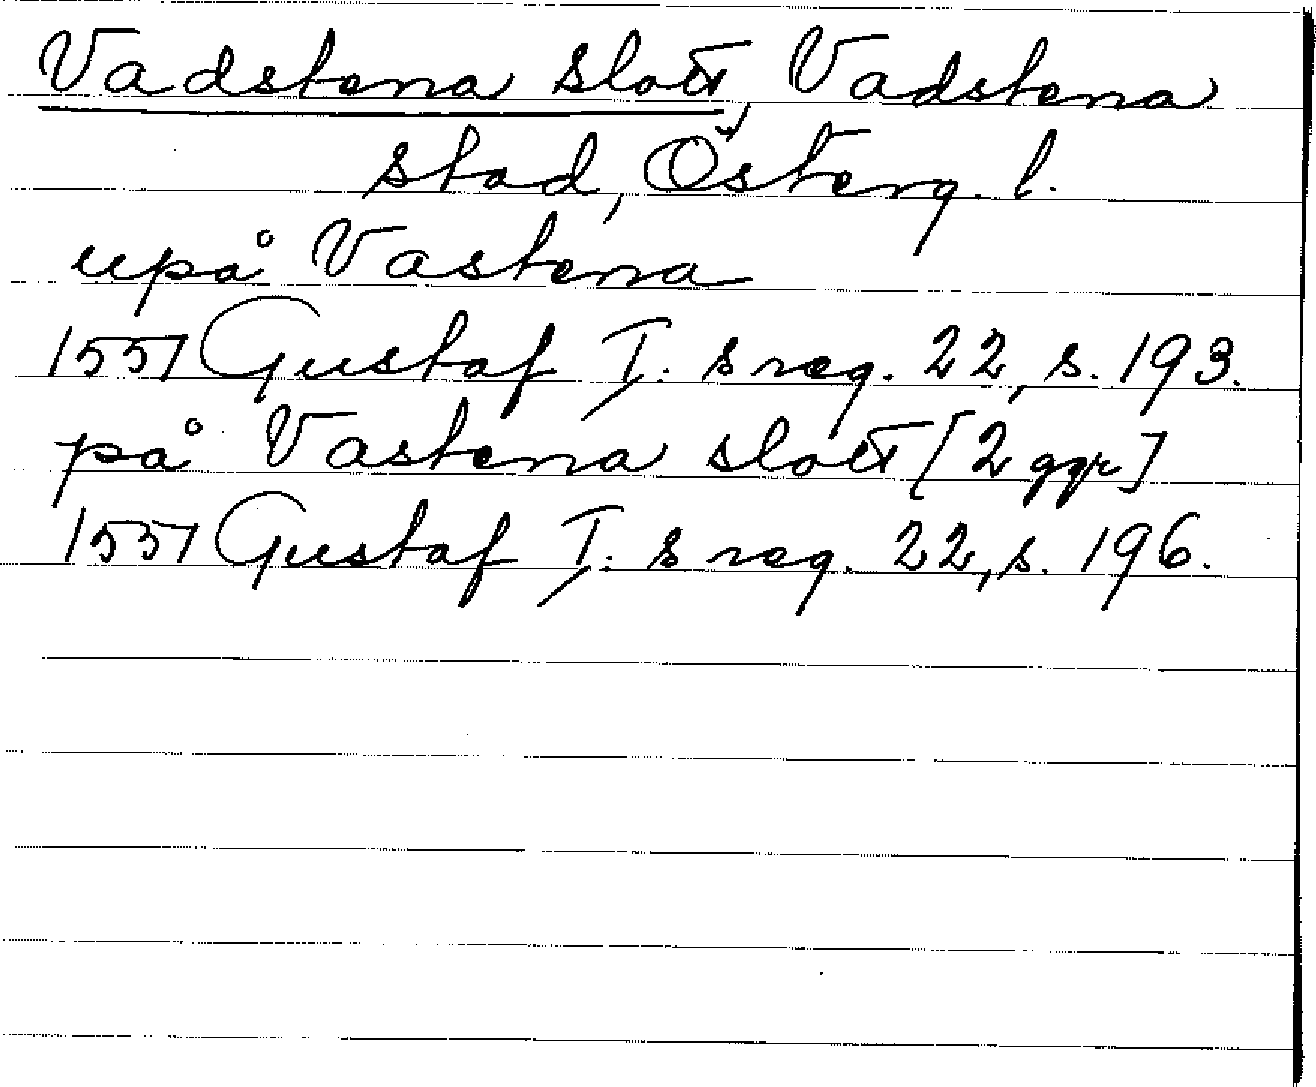 Vadstena slott, Vadstena
stad, Österg. l.
upå Vastena
1551 Gustaf I:s reg. 22, s. 193.
på Vastena slott [2 ggr]
1551 Gustaf I:s reg. 22, s. 196.